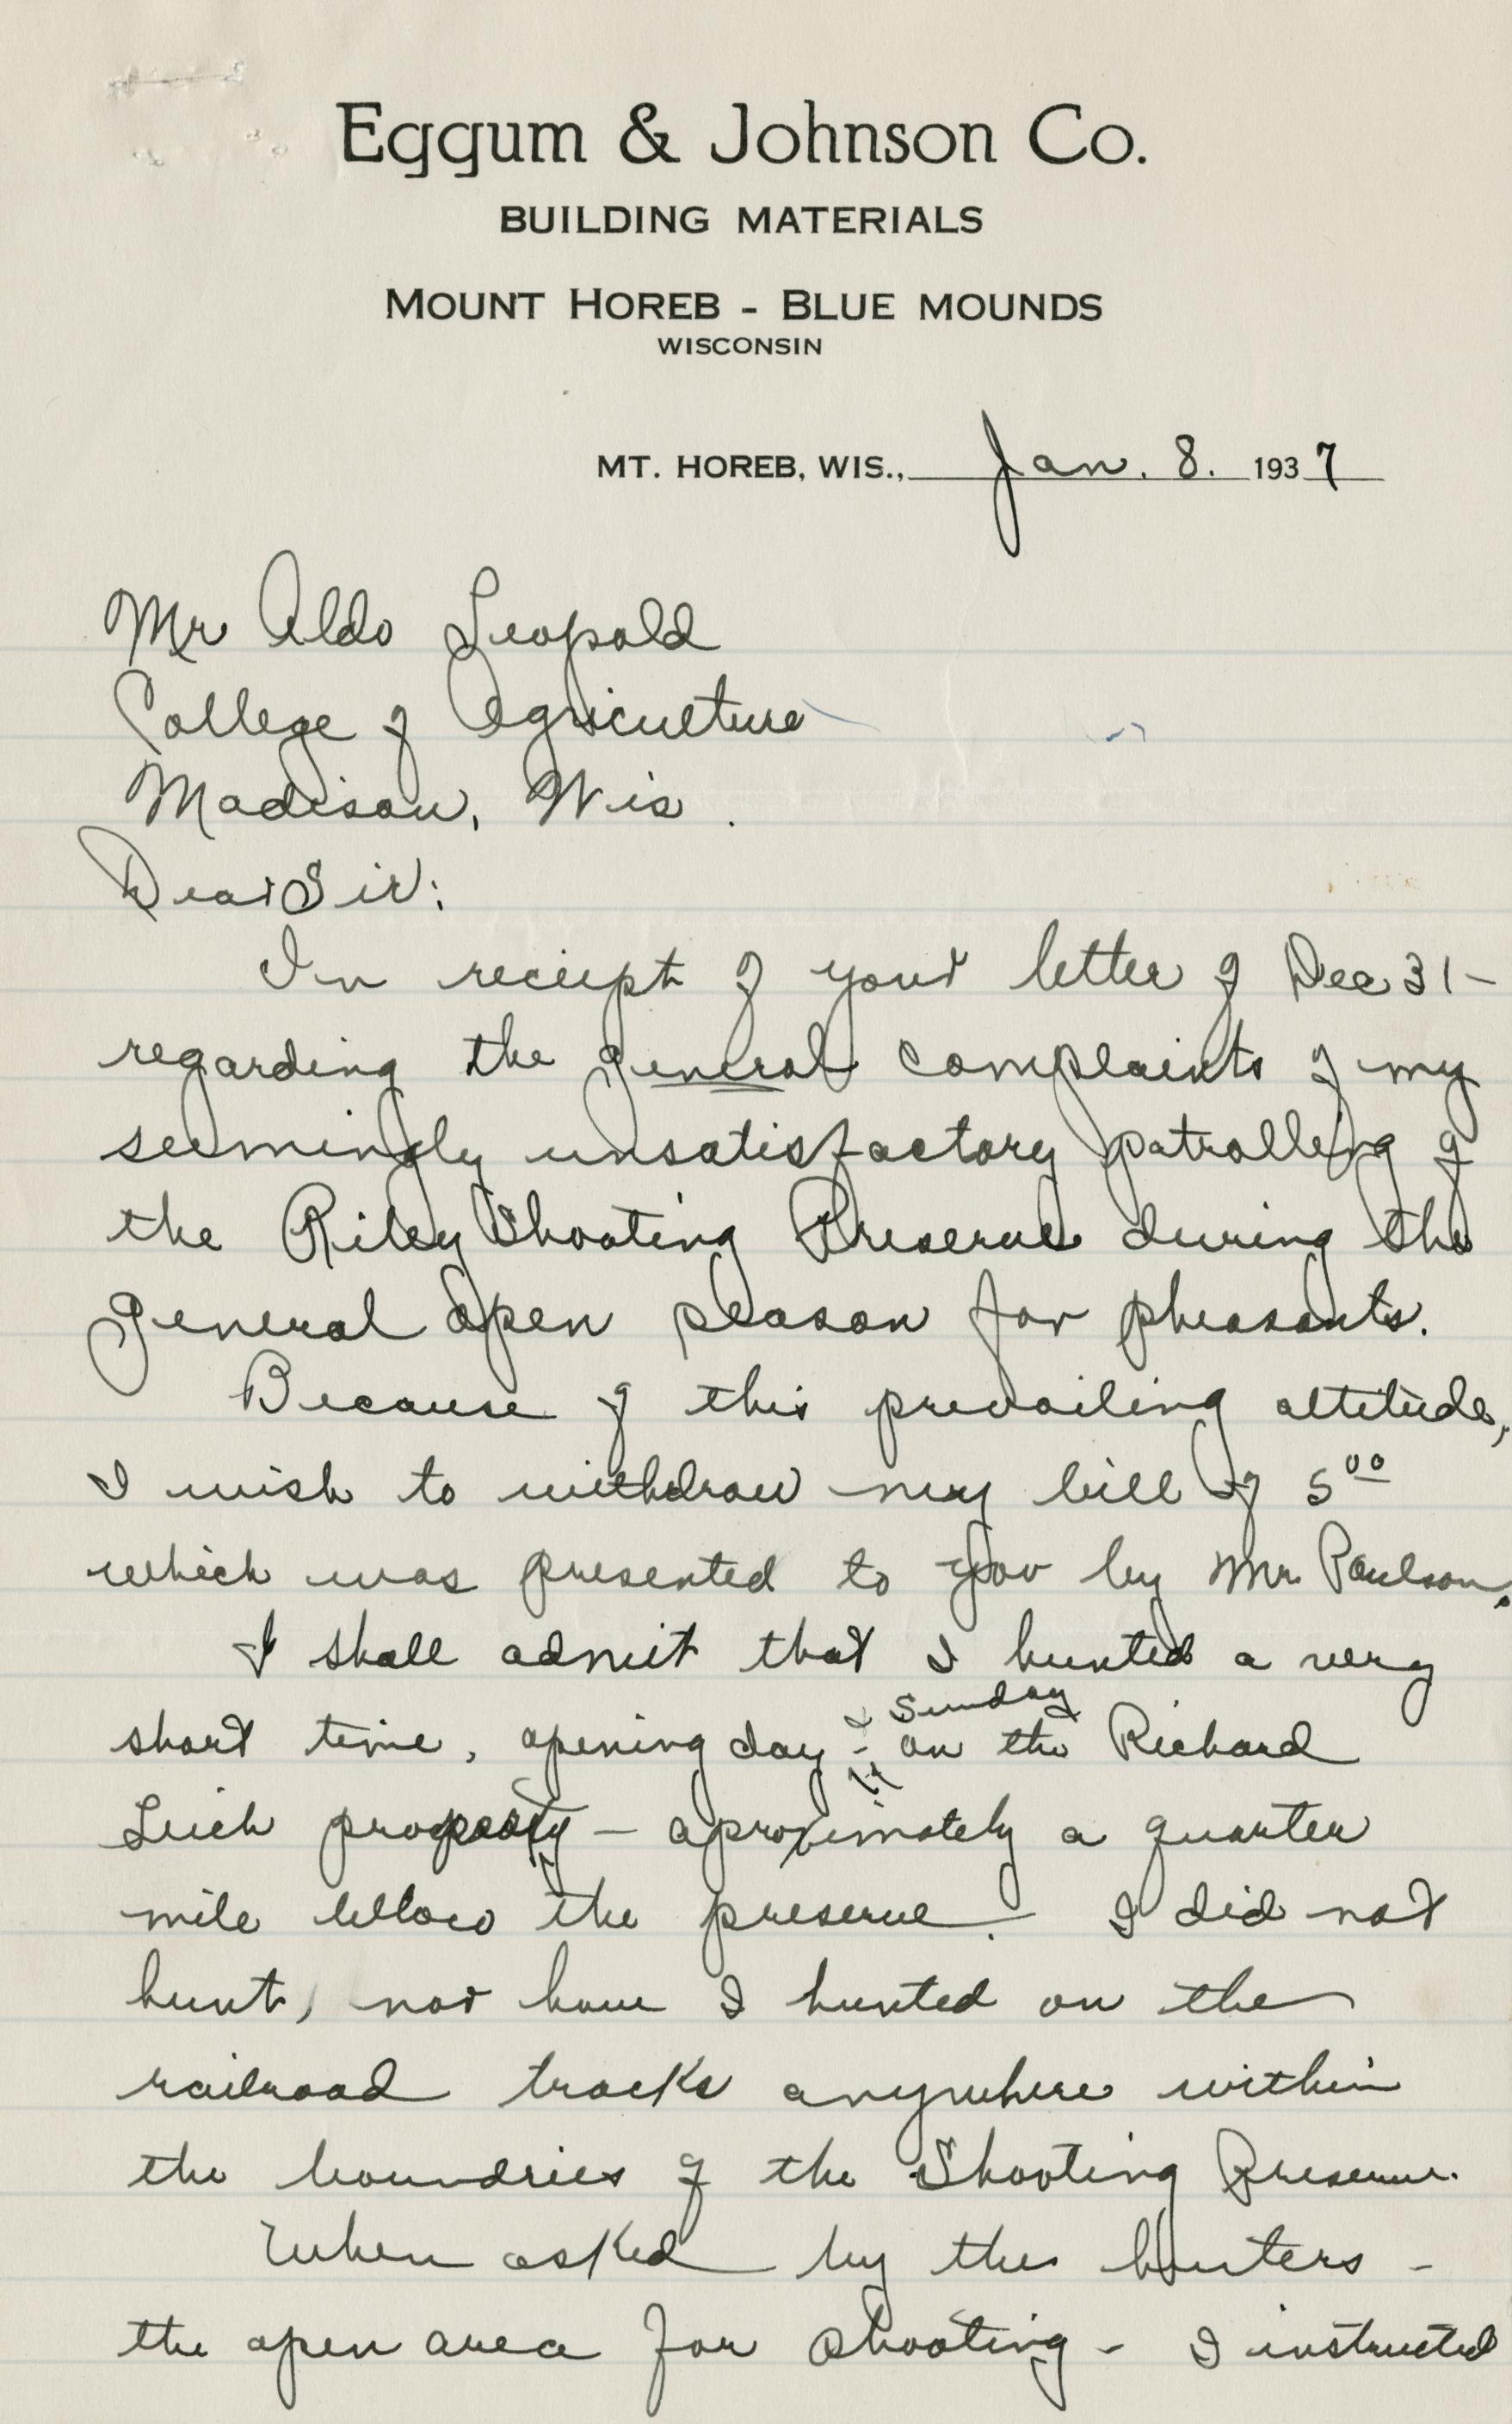 Eggum & Johnson Co.
BUILDING MATERIALS
MOUNT HOREB - BLUE MOUNDS
WISCONSIN
MT. HOREB, WIS., Jan. 8. 1937
Mr Aldo Leopold
College of Agriculture
Madison, Wis.
Dear Sir:
In reciept of your letter of Dec 31 -
regarding the general complaints of my
seemingly unsatisfactory patrolling of
the Riley Shooting Preserve during the
general open season for pheasants.
Because of this prevailing attitude,
I wish to withdraw my bill of 5 00
which was presented to you by Mr. Paulson.
I shall admit that I hunted a very
& Sunday
short time, opening day - on the Richard
property - aproximately a quarter
mile below the preserve. I did not
hunt, nor have I hunted on the
railroad tracks anywhere within
the boundries of the Shooting Preserve.
When asked by the hunters -
the open area for shooting - I instructed